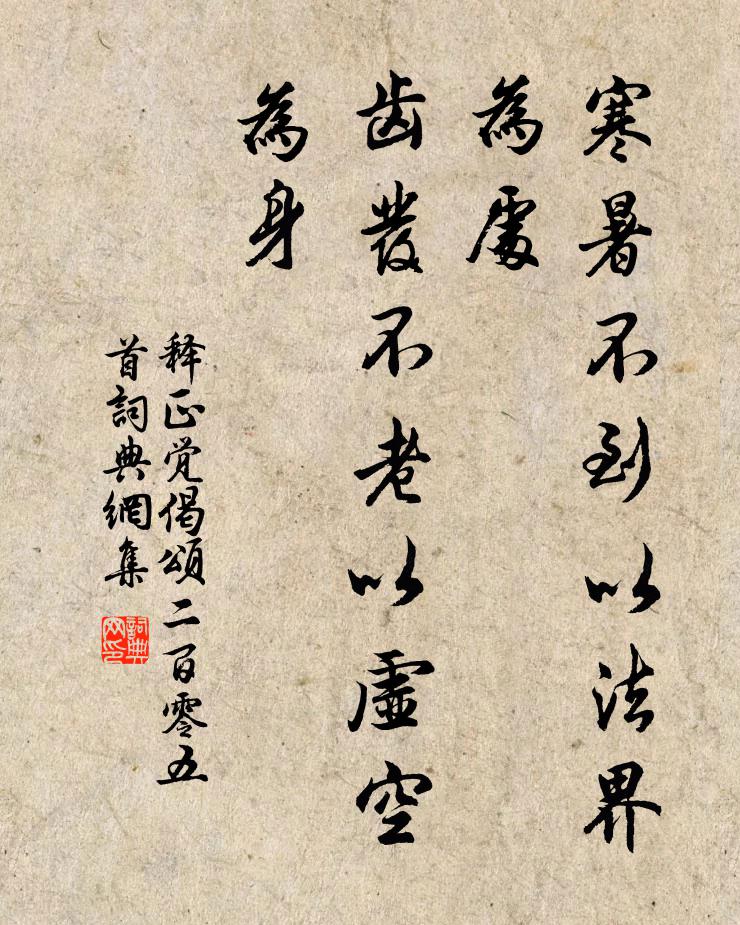 寒暑不到以法界
為處
齿發不老以虛空
為身
释正觉偈頌二百零五
首詞典網集
詞典
网印